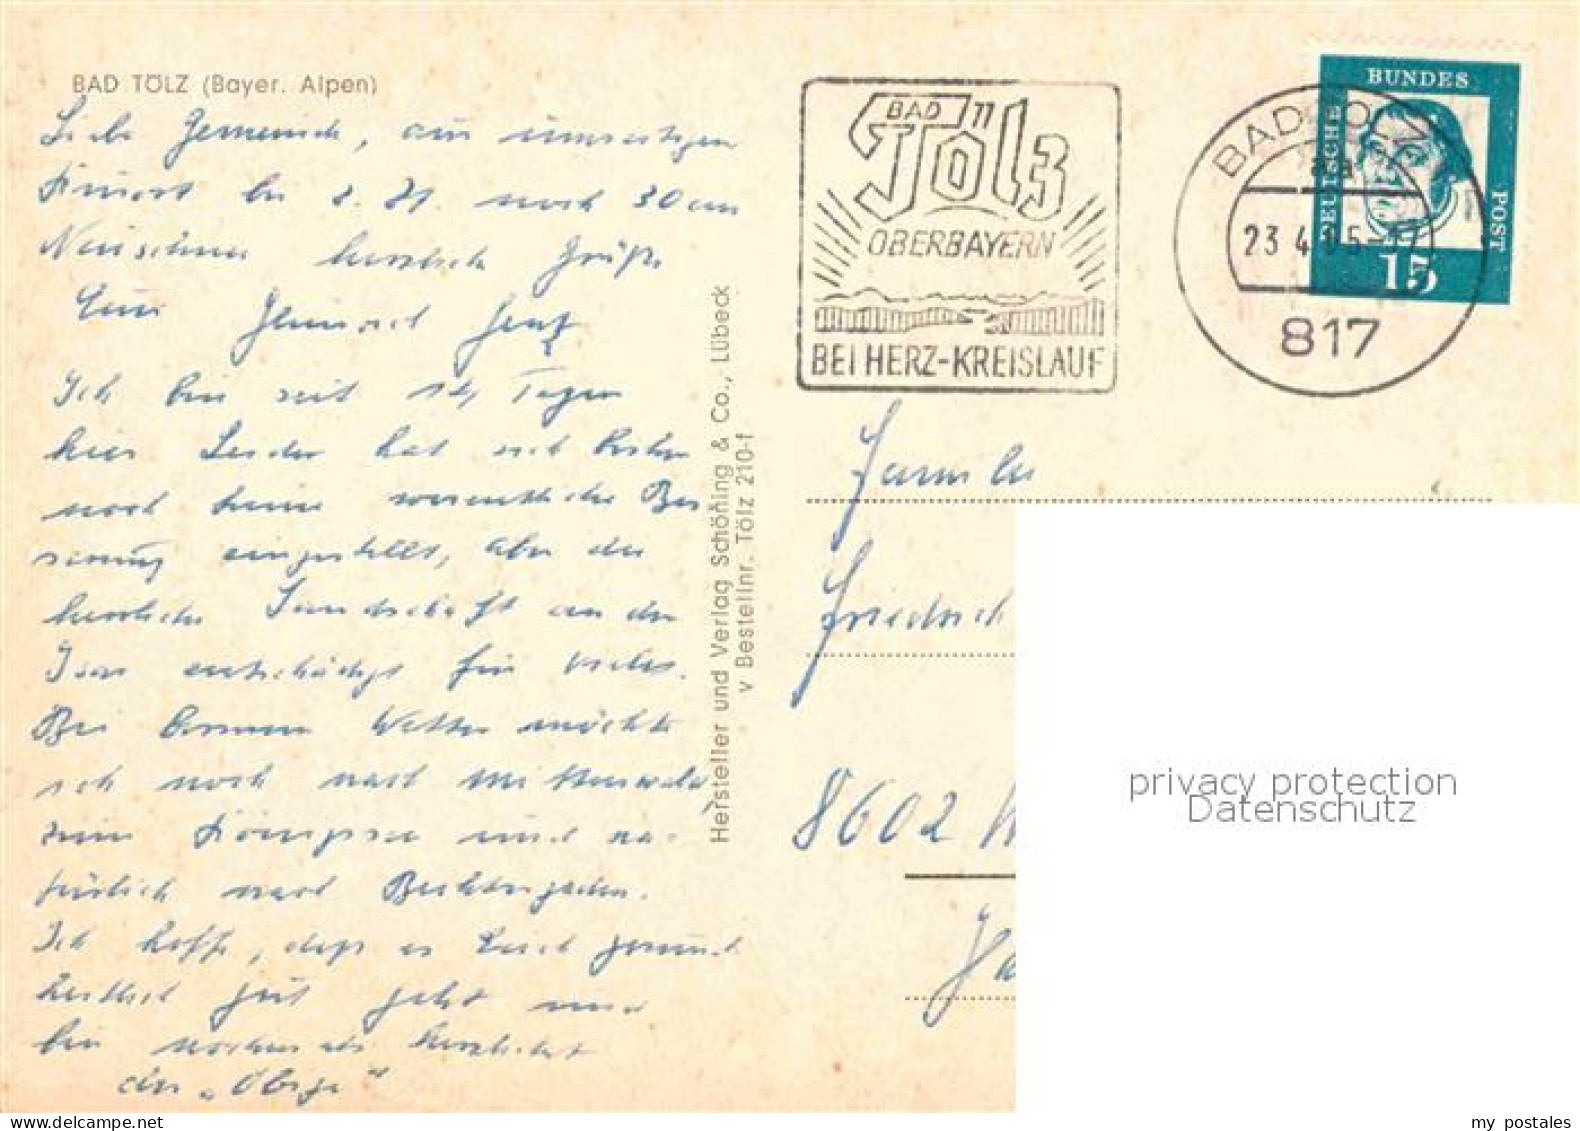 BAD TÖLZ (Bayer. Alpen)
Liebe Gemeinde, am
Kurort bei z. Zt. noch 30 cm
Neuschnee herzliche Grüße
Euer
Ich bin seit 14 Tagen
hier Leider hat sich bisher
noch keine wesentliche Bes
serung eingestellt, aber die
herrliche Landschaft an der
Isar entschädigt für vieles.
Bei besserem Wetter möchte
ich noch nach Mittenwald
zum Königssee und na-
türlich nach Berchtesgaden.
Ich hoffe, daß es Euch gesund-
heitlich gut geht und
bin nochmals herzlichst
der "Obige"
Hersteller und Verlag Schöning & Co., Lübeck
v Bestellnr. Tölz 210-f
BAD
Tölz
OBERBAYERN
BEI HERZ-KREISLAUF
BAD TÖLZ
23.4. 5-17
817
DEUTSCHE
BUNDES
POST
15
Familie
Friedrich
8602
privacy protection
Datenschutz
my postales
www.delcampe.net